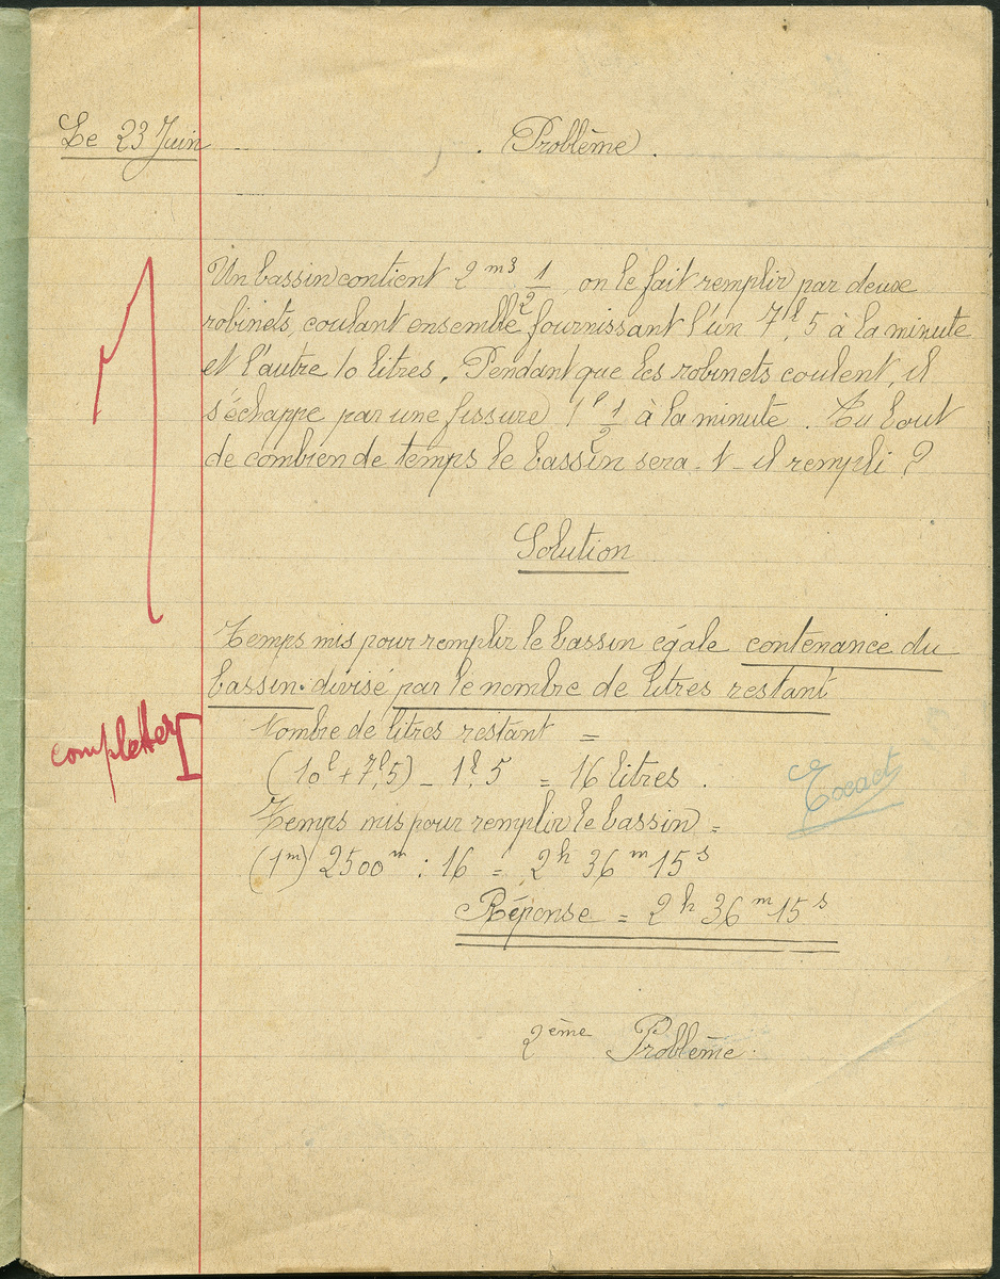 Le 23 Juin
Problème.
Un bassin contient 2 m3 1/2 on le fait remplir par deux
robinets, coulant ensemble fournissant l'un 7l,5 à la minute
et l'autre 10 litres. Pendant que les robinets coulent, il
s'échappe par une fissure 1l 1/2 à la minute. Au bout
de combien de temps le bassin sera-t-il rempli ?
Solution
Temps mis pour remplir le bassin égale contenance du
bassin divisé par le nombre de litres restant
completter
Nombre de litres restant =
(10l + 7l,5) - 1l,5 = 16 litres.
Exact
Temps mis pour remplir le bassin =
(1m) 2500m : 16 = 2h 36m 15s
Réponse = 2h 36m 15s
2ème Problème.